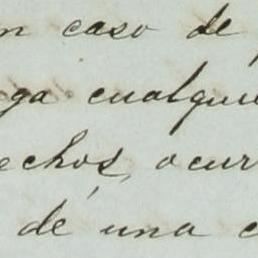 n caso de
ga cualquie
echos, ocur
dé una c